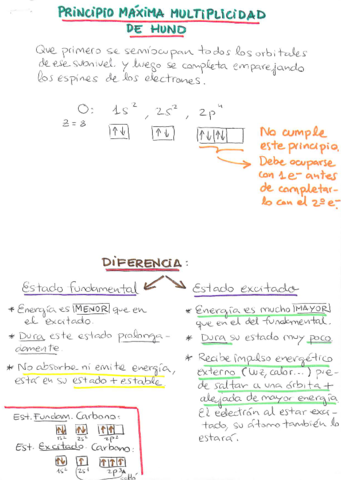 PRINCIPIO MÁXIMA MULTIPLICIDAD
DE HUND
Que primero se semiocupan todos los orbitales
de ese subnivel y luego se completa emparejando
los espines de los electrones.
O: 1s² , 2s² , 2p⁴
Z=8
↑↓ ↑↓ ↑↓ ↑↓
No cumple
este principio.
Debe ocuparse
con 1e⁻ antes
de completar-
lo con el 2º e⁻
DIFERENCIA:
Estado fundamental
* Energía es MENOR que en
el excitado.
* Dura este estado prolonga-
damente
* No absorbe ni emite energía,
está en su estado + estable
Estado excitado
* Energía es mucho MAYOR
que en el del fundamental.
* Dura su estado muy poco
* Recibe impulso energético
externo (luz, calor...) pue-
de saltar a una órbita +
alejada de mayor energía
El electrón al estar exci-
tado, su átomo también lo
estará.
Est. Fundam. Carbono:
↑↓ ↑↓ ↑ ↑
1s² 2s² 2p²
Est. Excitado Carbono:
↑↓ ↑ ↑ ↑ ↑
1s² 2s 2p³